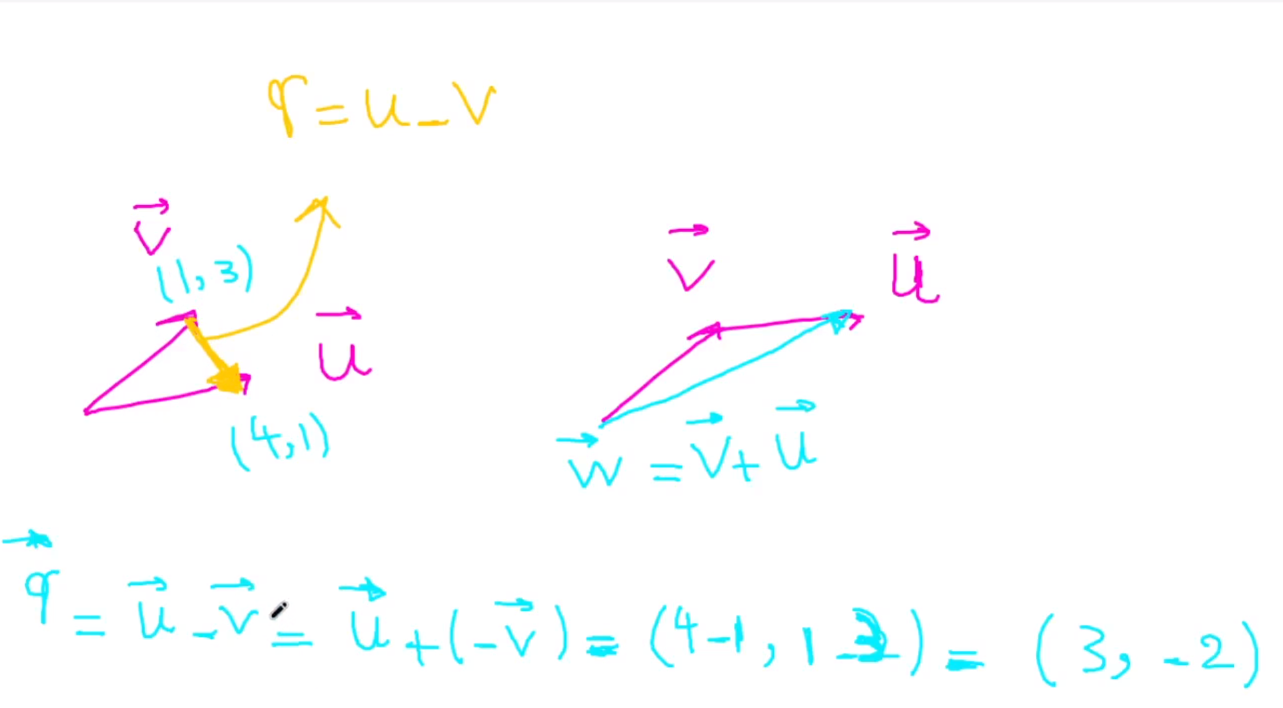 q = u - v
v⃗
(1, 3)
u⃗
(4, 1)
v⃗
u⃗
w⃗ = v⃗ + u⃗
q⃗ = u⃗ - v⃗ = u⃗ + (-v⃗) = (4-1, 1-3) = (3, -2)